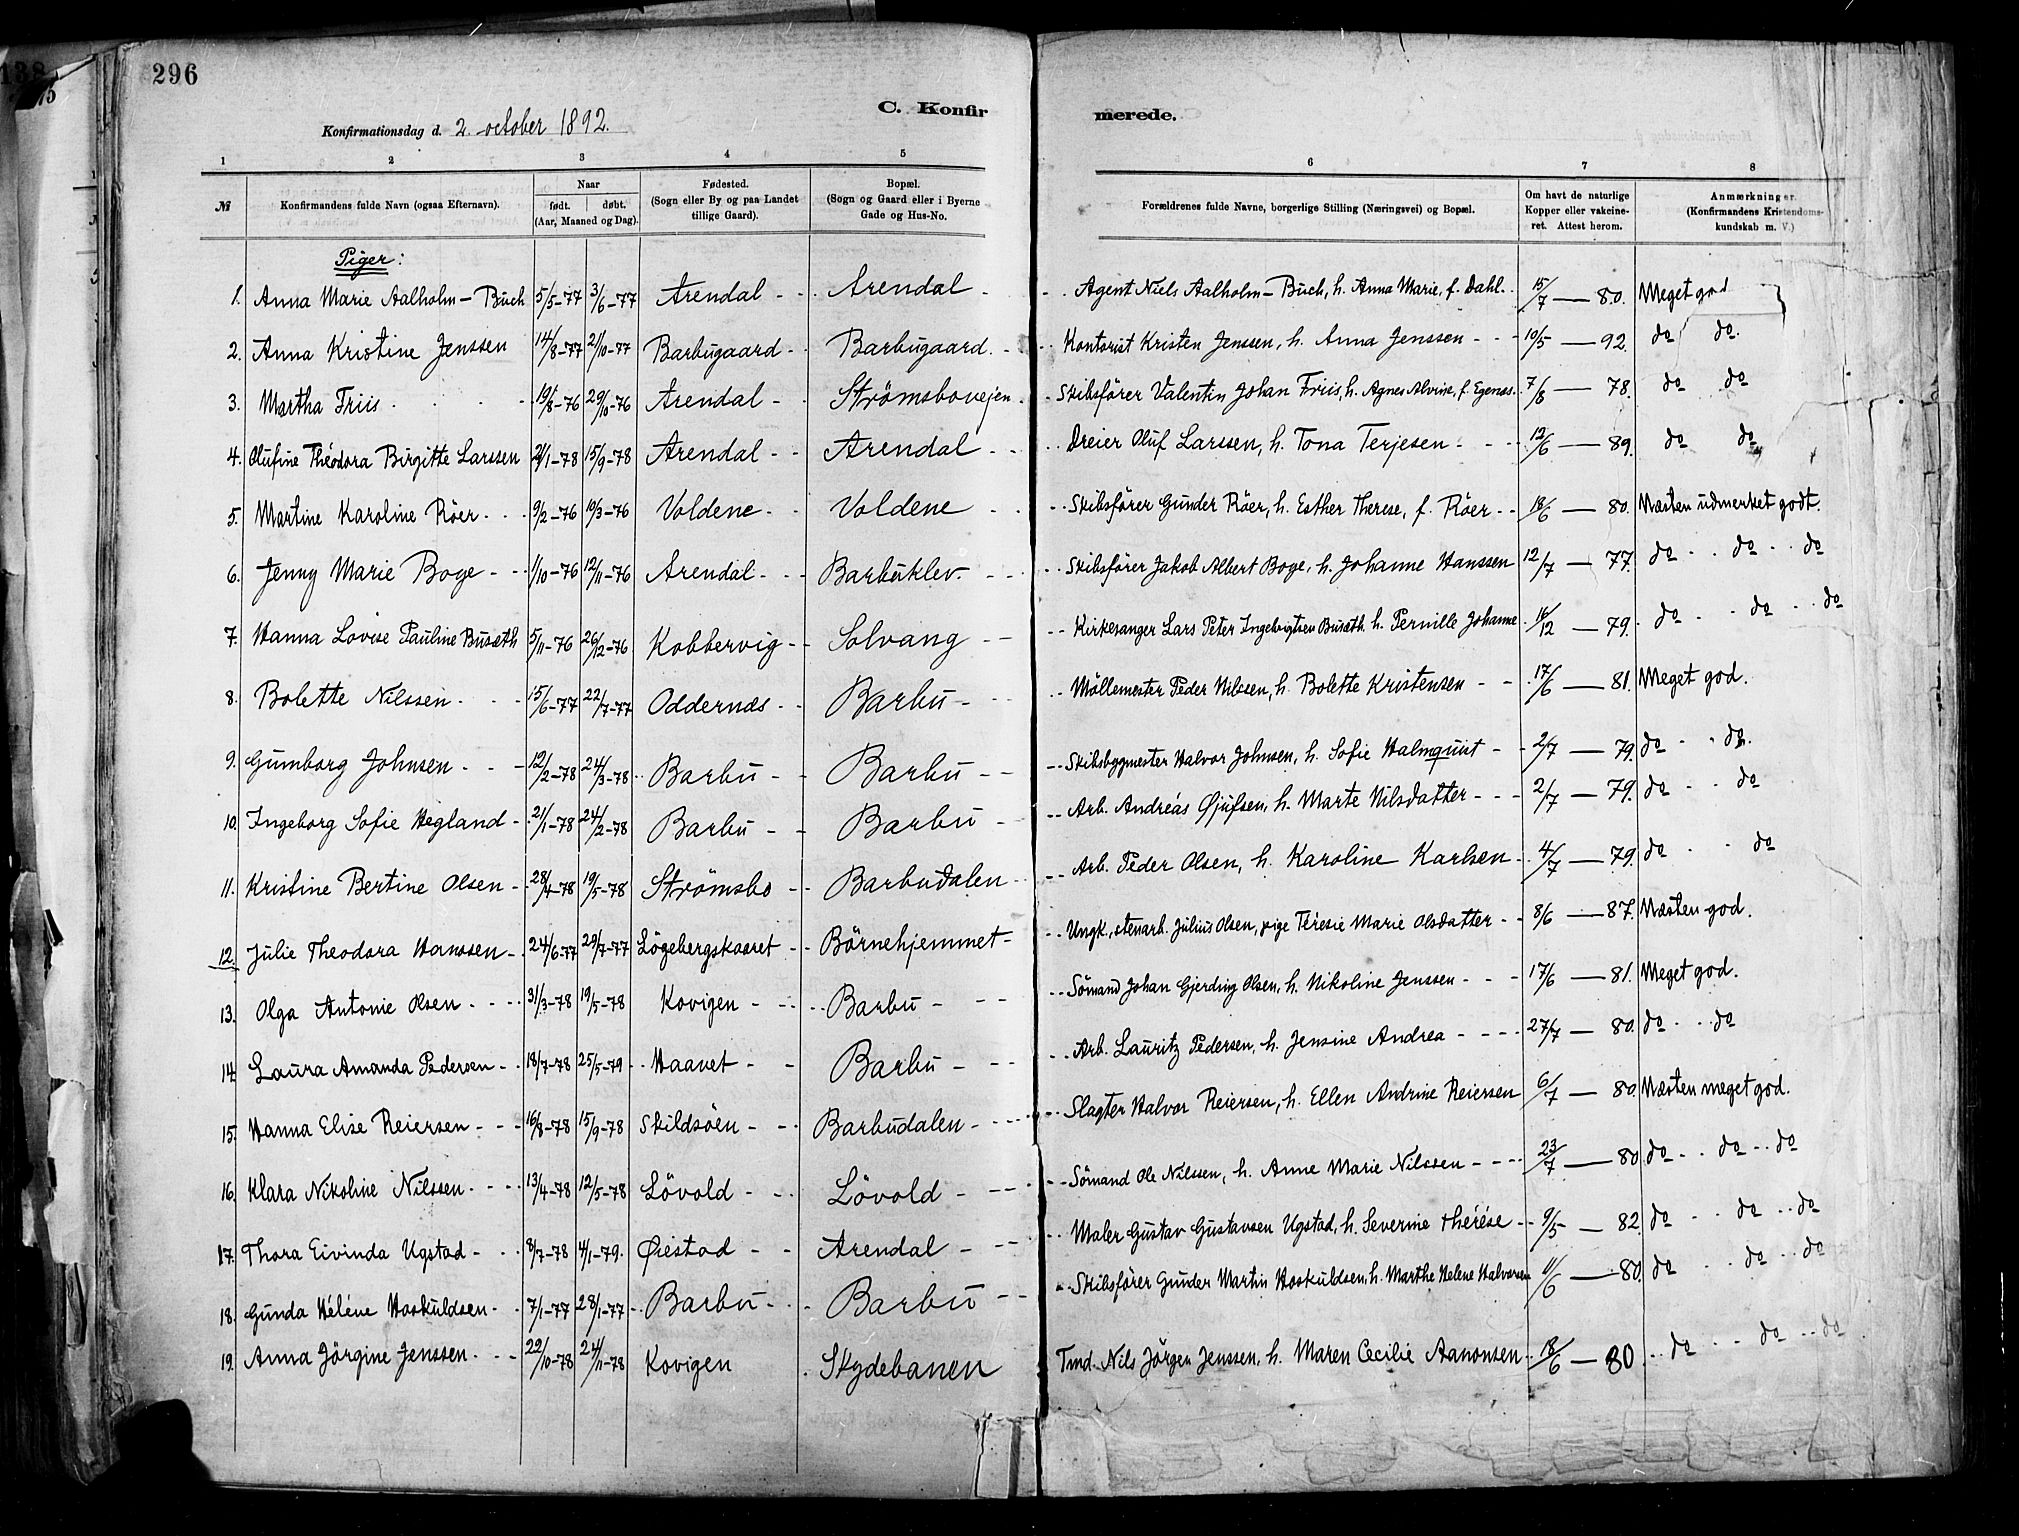 138
296
C. Konfir
merede.
Konfirmationsdag d. 2. october 1892.
1 2 3 4 5 6 7 8
№ Konfirmandens fulde Navn (ogsaa Efternavn). Naar født. døbt. (Aar, Maaned og Dag). Fødested. (Sogn eller By og paa Landet tillige Gaard). Bopæl. (Sogn og Gaard eller i Byerne Gade og Hus-No. Forældrenes fulde Navne, borgerlige Stilling (Næringsvei) og Bopæl. Om havt de naturlige Kopper eller vakcineret. Attest herom. Anmærkninger. (Konfirmandens Kristendomskundskab m. V.)
Piger:
1. Anna Marie Aalholm-Buch 5/5-77 3/6-77 Arendal Arendal Agent Niels Aalholm-Buch, h. Anna Marie, f. Dahl. 15/7 — 80. Meget god
2. Anna Kristine Jenssen 14/8-77 21/10-77 Barbugaard Barbugaard. Kontorist Kristen Jenssen, h. Anna Jenssen 10/5 — 92. do do.
3. Martha Friis 19/8-76 29/10-76 Arendal Strømsboveien Skibsfører Valentin Johan Friis, h. Agnes Alvine, f. Egenæs. 7/8 — 78. do do
4. Olufine Théodora Birgitte Larssen 21/1-78 15/9-78 Arendal Arendal Dreier Oluf Larssen, h. Tona Terjesen 12/6 — 89. do do
5. Martine Karoline Röer 9/2-76 19/3-76 Voldene Voldene Skibsfører Gunder Röer, h. Esther Therese, f. Röer 18/6 — 80. Næsten udmerket godt.
6. Jenny Marie Boge 1/10-76 12/11-76 Arendal Barbuklev. Skibsfører Jakob Albert Boge, h. Johanne Hanssen 12/7 — 77. do do do
7. Hanna Lovise Pauline Busæth 5/11-76 26/12-76 Kobbervig Solvang Kirkesanger Lars Peter Ingebrigtsen Busæth. h. Pernille Johanne 16/12 — 79. do do do
8. Bolette Nilssen 15/6-77 22/7-77 Oddernæs Barbu Möllemester Peder Nilssen, h. Bolette Kristensen 17/6 — 81. Meget god.
9. Gumborg Johnsen 12/2-78 24/3-78 Barbu Barbu Skibsbygmester Halvor Johnsen, h. Sofie Halmquist 2/7 — 79. do do.
10. Ingeborg Sofie Hegland 21/1-78 24/2-78 Barbu Barbu Arb. Andreas Gjufsen, h. Marte Nilsdatter 2/7 — 79. do do
11. Kristine Bertine Olsen 28/4-78 19/5-78 Strömsbo Barbudalen Arb. Peder Olsen, h. Karoline Karlsen 4/7 — 79. do do
12. Julie Theodora Hanssen 24/6-77 29/7-77 Lögebergskaaret Börnehjemmet Ungk., stenarb. Julius Olsen, pige Térésie Marie Olsdatter 8/6 — 87. Næsten god.
13. Olga Antonie Olsen 31/3-78 19/5-78 Kovigen Barbu Sömand Johan Gjerding Olsen, h. Nikoline Jenssen 17/6 — 81. Meget god.
14. Laura Amanda Pedersen 18/7-78 25/5-79 Haavet Barbu Arb. Lauritz Pedersen, h. Jensine Andrea 27/7 — 80. do do
15. Hanna Elise Reiersen 16/8-78 15/9-78 Skildsöen Barbudalen Slagter Halvor Reiersen, h. Ellen Andrine Reiersen 6/7 — 80. Næsten meget god.
16. Klara Nikoline Nilssen 13/4-78 12/5-78 Lövold Lövold Sömand Ole Nilssen, h. Anne Marie Nilssen 23/7 — 80 do do do
17. Thora Eivinda Ugstad 8/7-78 4/1-79. Øiestad Arendal Maler Gustav Gustavsen Ugstad, h. Severine Thérése 9/5 — 82. do do do
18. Gunda Héléne Hoskuldsen 7/1-77 28/1-77 Barbu Barbu Skibsfører Gunder Martin Hoskuldsen, h. Marthe Helene Halvorsen 11/6 — 80. do do do
19. Anna Jörgine Jenssen 22/10-78 24/11-78 Kovigen Skydebanen Tmd. Nils Jörgen Jenssen, h. Maren Cecilie Aanonsen 18/6 — 80. do do do